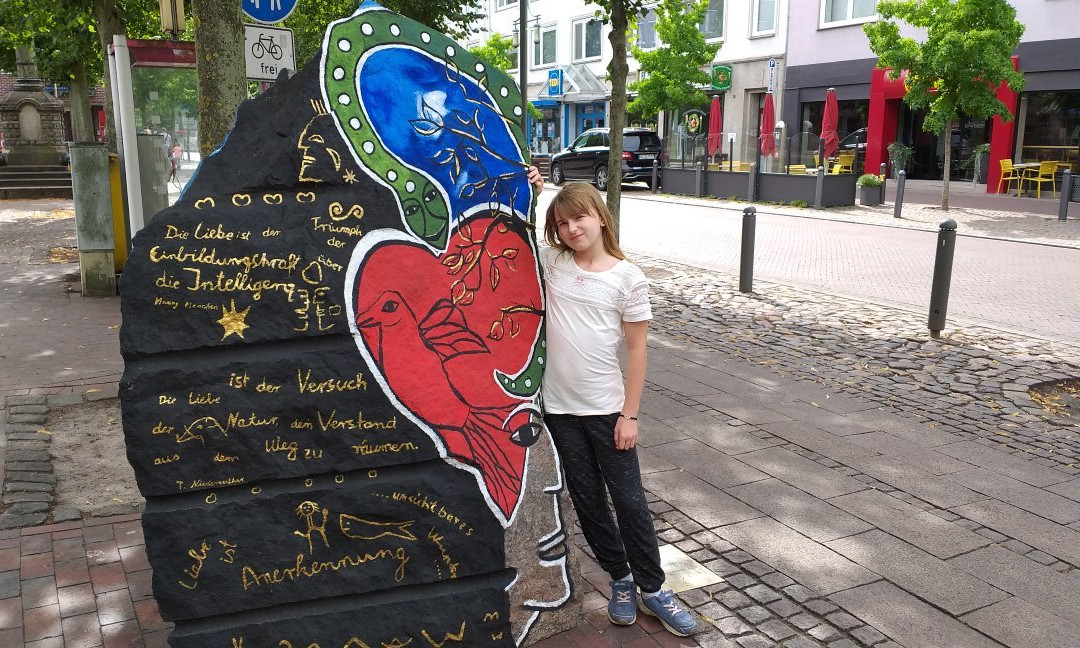 frei
Die Liebe ist der
Triumph
der
Einbildungskraft über
die Intelligenz
Henry Mencken
ist der Versuch
Die Liebe
der Natur, den Verstand
aus dem Weg zu räumen.
T. Niederreuther
....unsichtbares
Liebe ist
Anerkennung